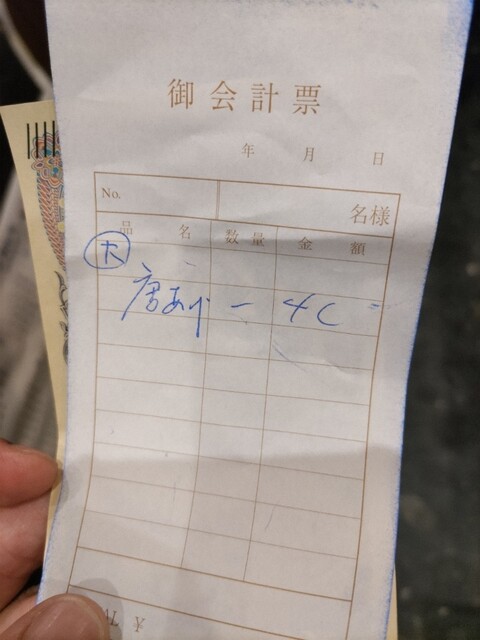 御会計票
年 月 日
No. 名様
品名 数量 金額
唐あげ 一
¥